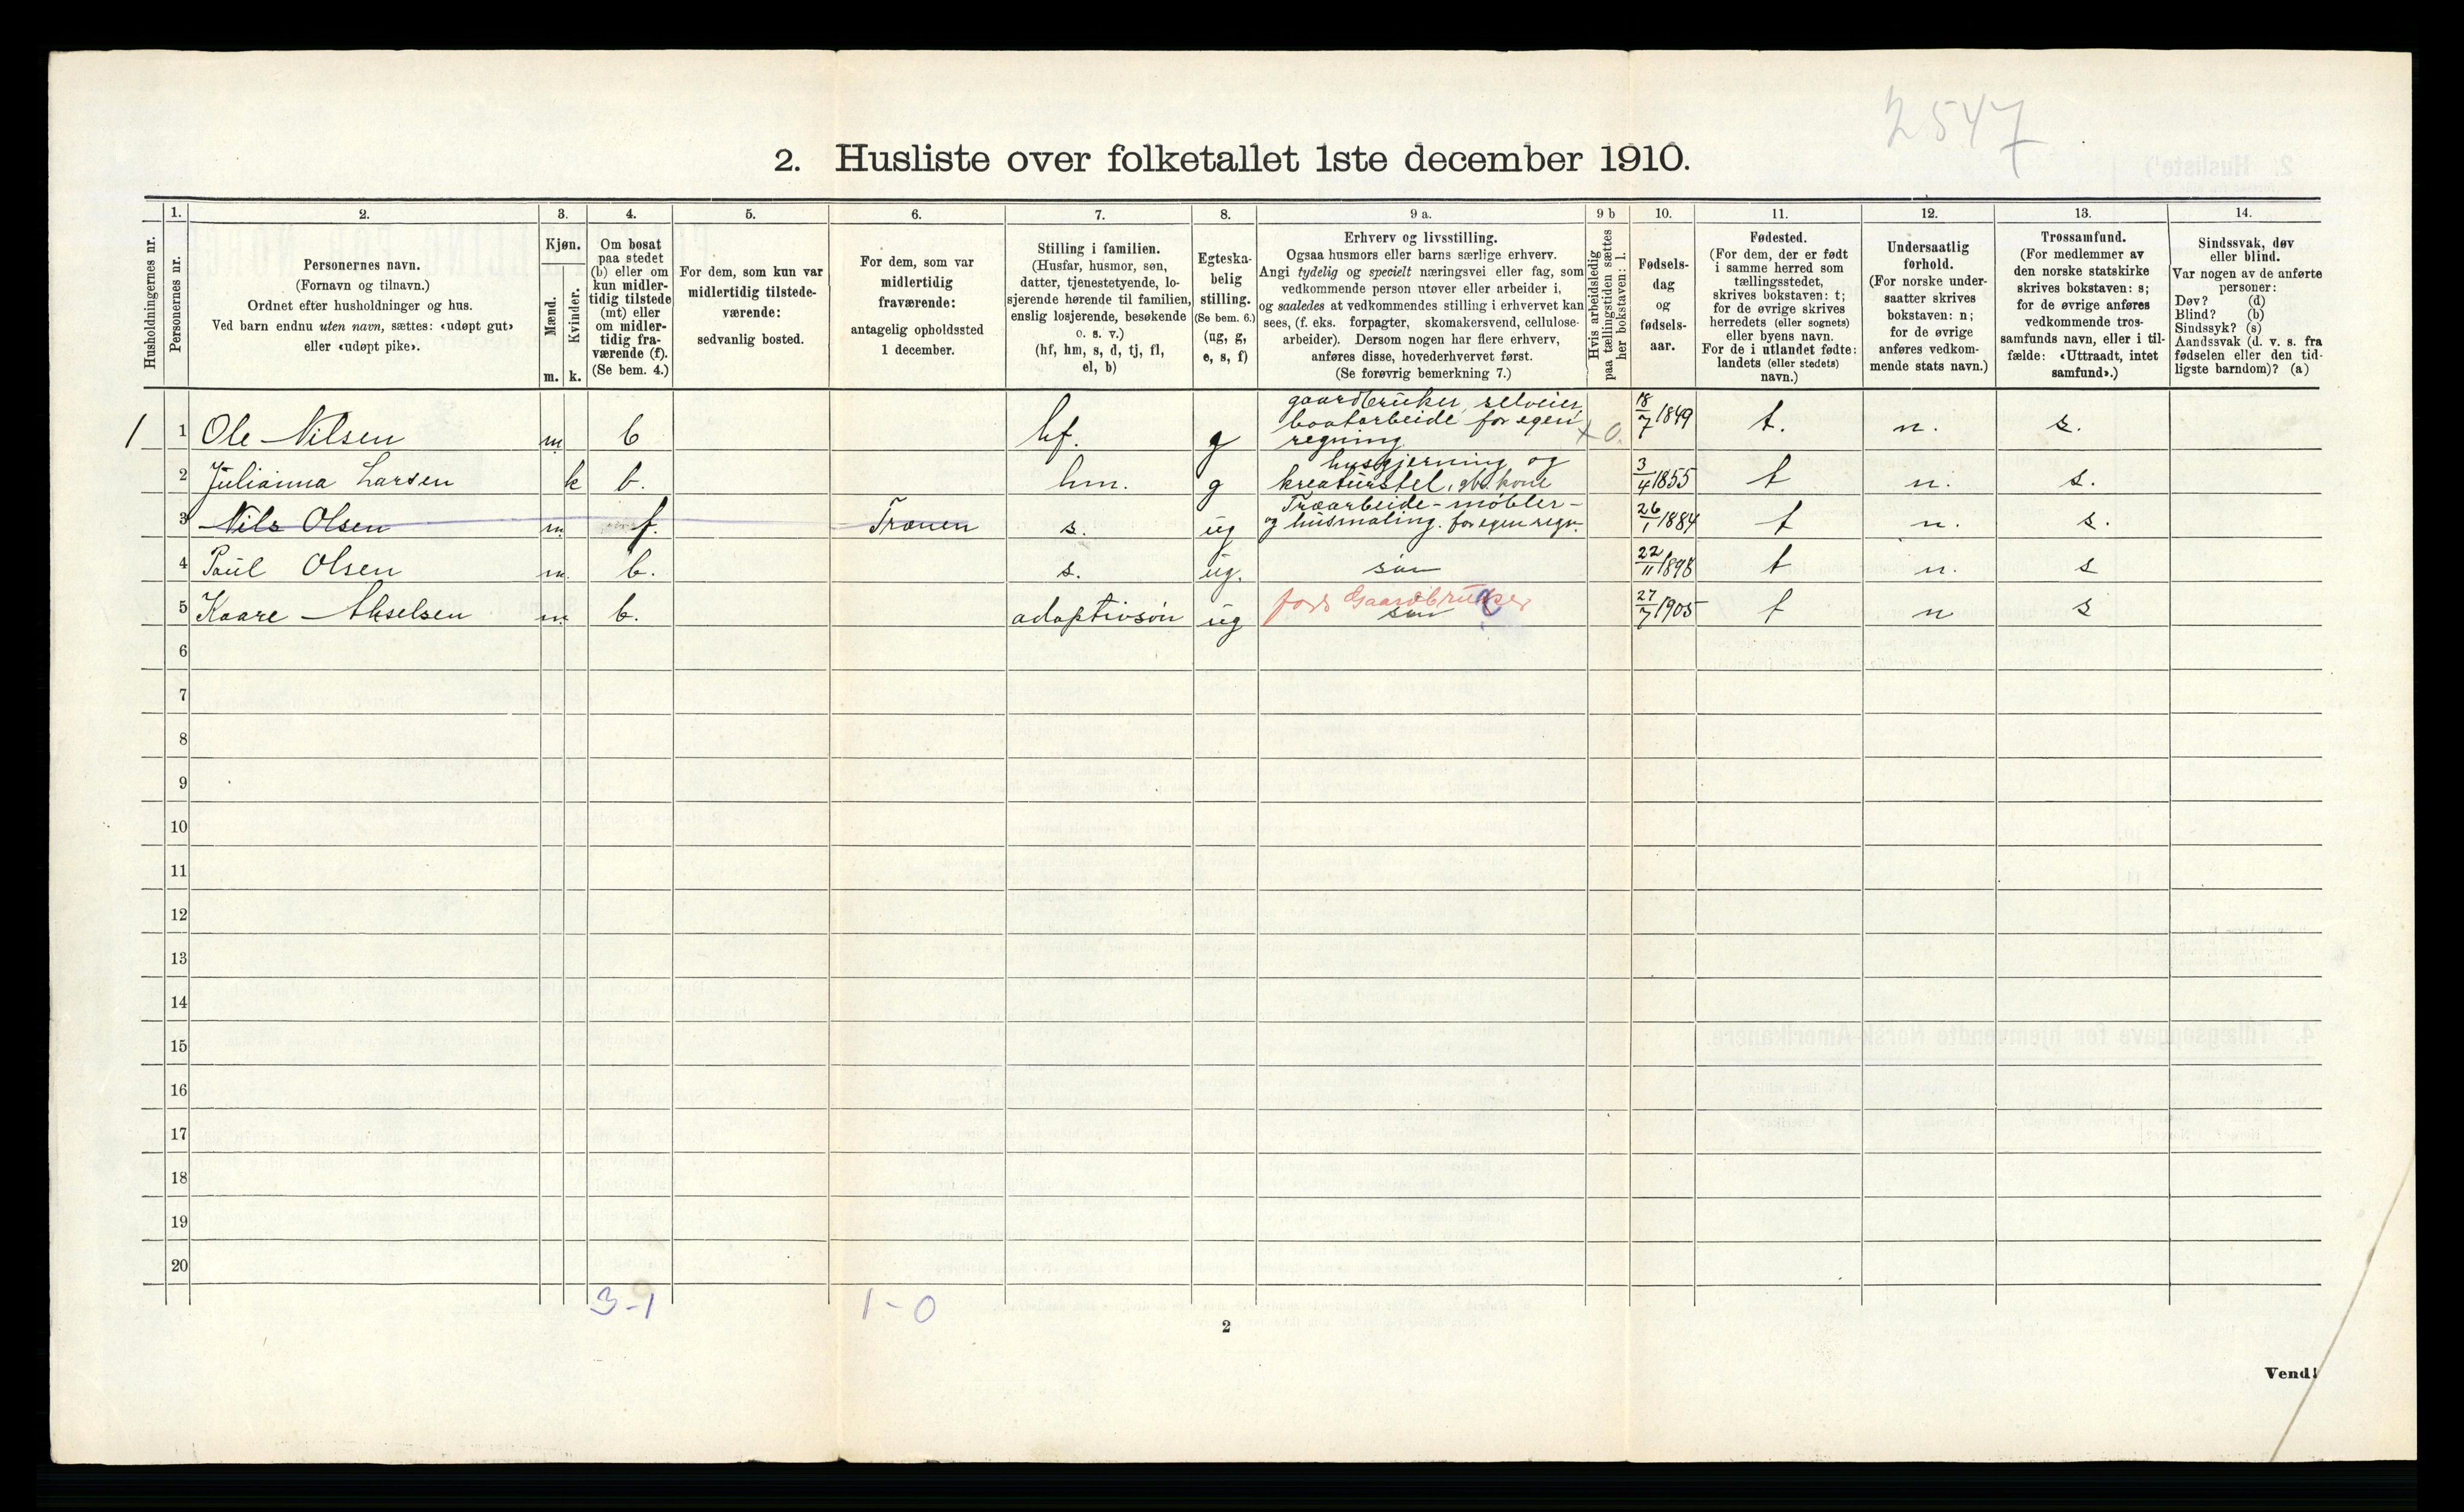 2547
2. Husliste over folketallet 1ste december 1910.
Husholdningernes nr.
1.
Personernes nr.
2.
Personernes navn.
(Fornavn og tilnavn.)
Ordnet efter husholdninger og hus.
Ved barn endnu uten navn, sættes: «udøpt gut»
eller «udøpt pike».
3.
Kjøn.
Mænd.
Kvinder.
m. k.
4.
Om bosat
paa stedet
(b) eller om
kun midler-
tidig tilstede
(mt) eller
om midler-
tidig fra-
værende (f).
(Se bem. 4.)
5.
For dem, som kun var
midlertidig tilstede-
værende:
sedvanlig bosted.
6.
For dem, som var
midlertidig
fraværende:
antagelig opholdssted
1 december.
7.
Stilling i familien.
(Husfar, husmor, søn,
datter, tjenestetyende, lo-
sjerende hørende til familien,
enslig losjerende, besøkende
o. s. v.)
(hf, hm, s, d, tj, fl,
el, b)
8.
Egteska-
belig
stilling.
(Se bem. 6.)
(ug, g,
e, s, f)
9 a.
Erhverv og livsstilling.
Ogsaa husmors eller barns særlige erhverv.
Angi tydelig og specielt næringsvei eller fag, som
vedkommende person utøver eller arbeider i,
og saaledes at vedkommendes stilling i erhvervet kan
sees, (f. eks. forpagter, skomakersvend, cellulose-
arbeider). Dersom nogen har flere erhverv,
anføres disse, hovederhvervet først.
(Se forøvrig bemerkning 7.)
9 b
Hvis arbeidsledig
paa tællingstiden sættes
her bokstaven: l.
10.
Fødsels-
dag
og
fødsels-
aar.
11.
Fødested.
(For dem, der er født
i samme herred som
tællingsstedet,
skrives bokstaven: t;
for de øvrige skrives
herredets (eller sognets)
eller byens navn.
For de i utlandet fødte:
landets (eller stedets)
navn.)
12.
Undersaatlig
forhold.
(For norske under-
saatter skrives
bokstaven: n;
for de øvrige
anføres vedkom-
mende stats navn.)
13.
Trossamfund.
(For medlemmer av
den norske statskirke
skrives bokstaven: s;
for de øvrige anføres
vedkommende tros-
samfunds navn, eller i til-
fælde: «Uttraadt, intet
samfund».)
14.
Sindssvak, døv
eller blind.
Var nogen av de anførte
personer:
Døv? (d)
Blind? (b)
Sindssyk? (s)
Aandssvak (d. v. s. fra
fødselen eller den tid-
ligste barndom)? (a)
1 1 Ole Nilsen m b hf. g gaardbruker, selveier, baatarbeide for egen regning x 0. 18/7 1849 t. n. s.
2 Julianna Larsen k b. hm. g husgjerning og kreaturstel, gb. kone 3/4 1855 t n. s.
3 Nils Olsen m f. Trænen s. ug Træarbeide - møbler - og husmaling. for egen regn. 26/1 1884 t n. s.
4 Paul Olsen m. b. s. ug. søn 22/11 1898 t n. s
5 Kaare Akselsen m. b. adoptivsøn ug fors Gaardbruker søn 27/7 1905 t n s
6
7
8
9
10
11
12
13
14
15
16
17
18
19
20
3-1 1-0
2
Vend!